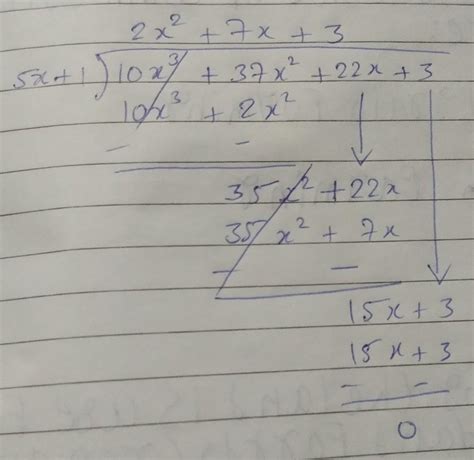 2x² + 7x + 3
5x+1 ) 10x³ + 37x² + 22x + 3
10x³ + 2x²
− −
35x² + 22x
35x² + 7x
− −
15x + 3
15x + 3
− −
0